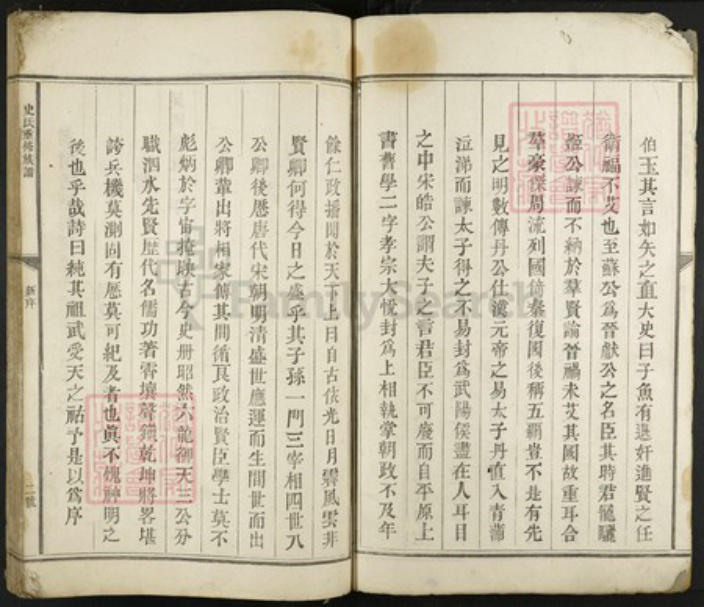 伯玉其言如矢之直大史曰子魚有退奸進賢之任
衛福不艾也至蘇公為晉獻公之名臣其時君寵驪
姬公諫而不納於羣賢論晉禍未艾其國故重耳合
羣豪傑周流列國倚秦復國後稱五覇豈不是有先
見之明數傳丹公仕漢元帝之易太子丹直入青蒲
泣涕而諫太子得之不易封為武陽侯盡在人耳目
之中宋皓公謂夫子之言君臣不可廢而自平原上
書舊學二字孝宗大悅封為上相執掌朝政不及年
餘仁政播聞於天下上日自古依光日月霽風雲非
賢卿何得今日之盛乎其子孫一門三宰相四世八
公卿後歷唐代宋朝明清盛世應運而生間世而出
公卿輩出將相家傳其間循良政治賢臣學士莫不
彪炳於宇宙掩映古今史册昭然六龍御天三公分
職泗水先賢歷代名儒功著霄壤聲鎮乾坤將畧堪
誇兵機莫測固有歷莫可紀及者也眞不愧神明之
後也乎哉詩曰純其祖武受天之祜予是以為序
史氏重修族譜
新序
二號
FamilySearch